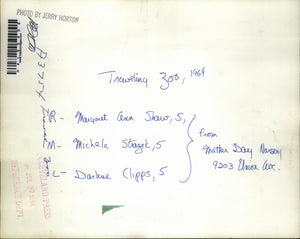 PHOTO BY JERRY HORTON
Traveling Zoo, 1969
R- Margaret Ann Shaw, 5,
M- Michele Strazek, 5
L- Darlene Clipps, 5
from
Mother Day Nursery
9203 Union Ave.
CLEVELAND PRESS